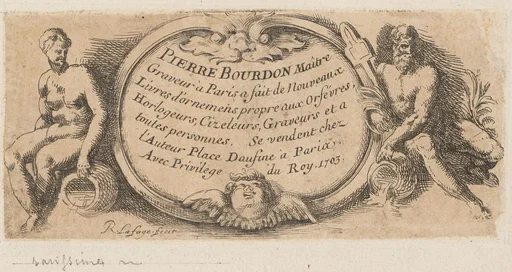 PIERRE BOURDON Maitre
Graveur à Paris a fait de Nouveaux
Livres d'ornemens propre aux Orfévres,
Horlogeurs, Cizeleurs, Graveurs et a
toutes personnes. Se vendent chez
l'Auteur Place Daufine à Paris.
Avec Privilege du Roy. 1703.
R. Lafage fecit